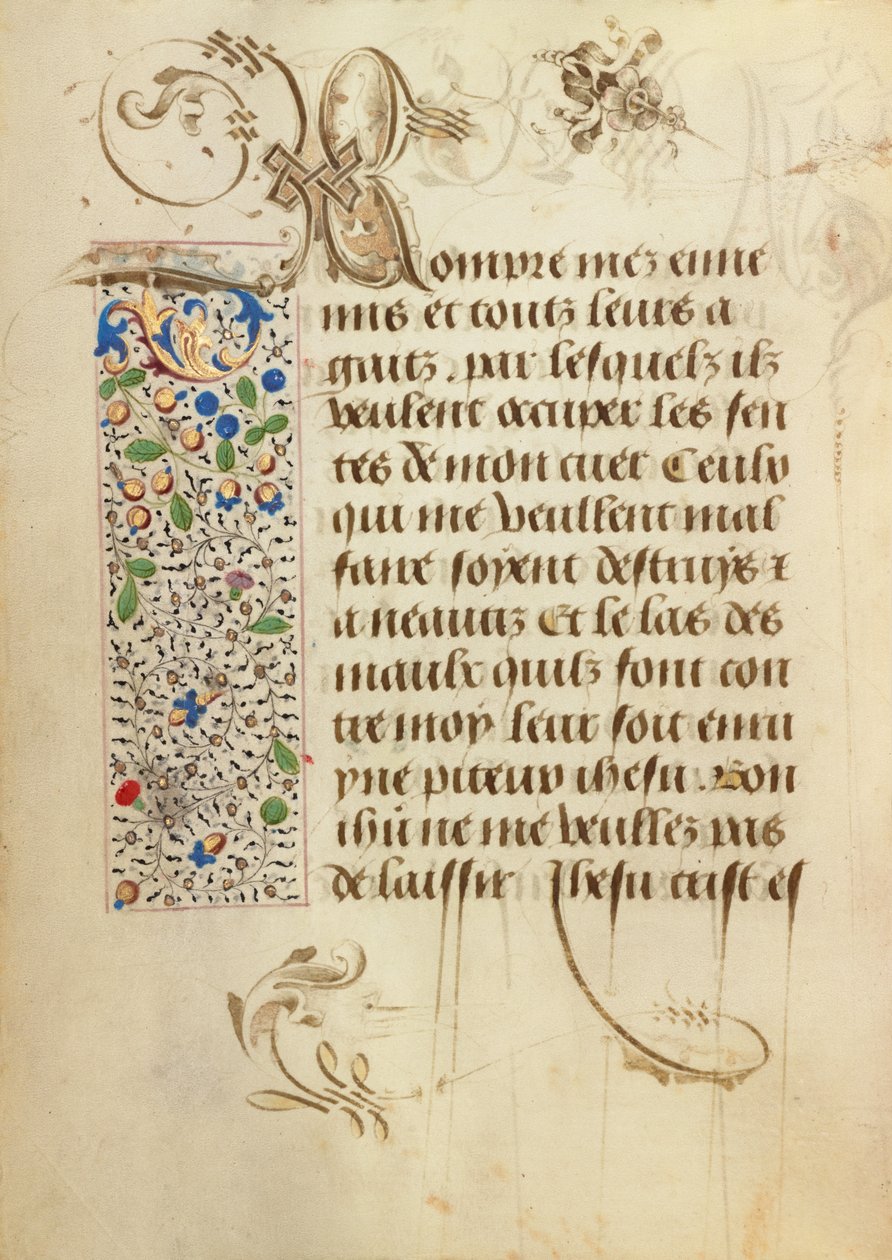 Rompre mez enne
mis et toutz leurs a
gaitz . par lesquelz ilz
veulent occuper les sen
tes de mon cuer Ceulx
qui me veullent mal
faire soyent destruys &
a neantiz Et le las des
maulx quilz font con
tre moy leur soit enui
yne piteux ihesu . Bon
ihu ne me veullez pas
de laissir Ihesu crist es